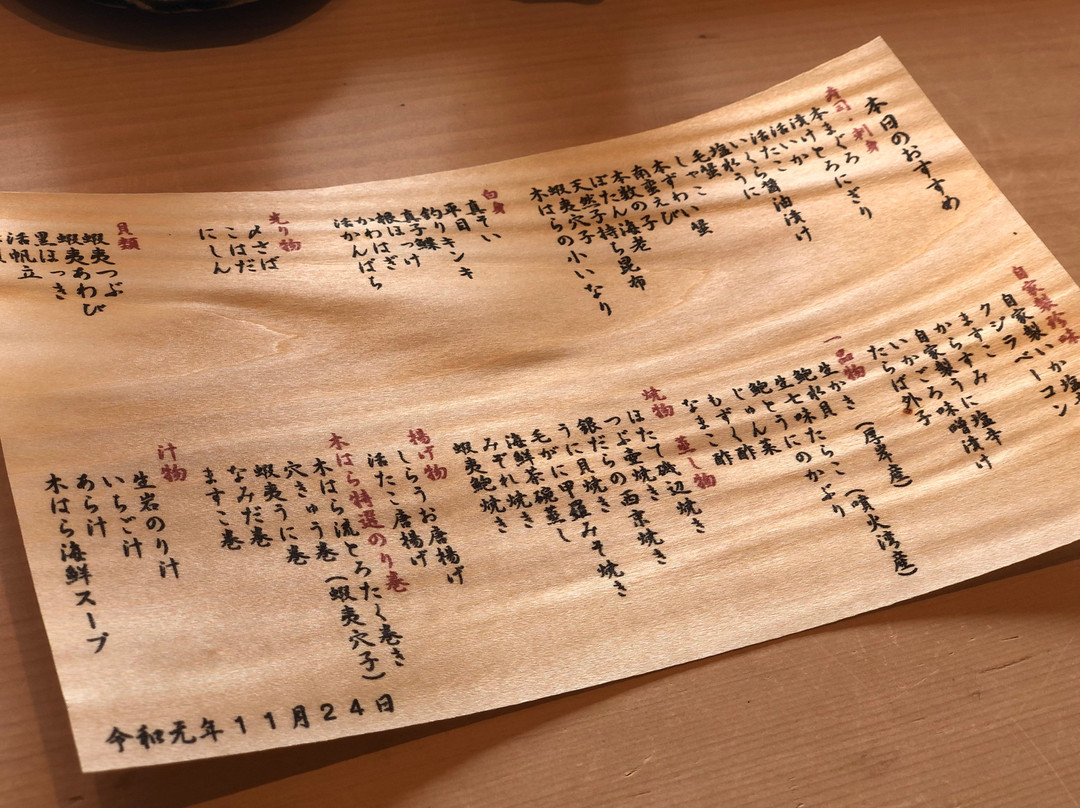 本日のおすすめ
寿司・刺身
本まぐろ
とろにぎり
漬け
活いか
活たこ醤油漬け
いくら
塩水うに
毛蟹
しゃこ
本ずわい蟹
南蛮えび
本数の子
ぼたん海老
天然子持ち昆布
蝦夷穴子
木はらの小いなり
白身
真そい
平目
釣りキンキ
真子鰈
根ぼっけ
かわはぎ
活かんぱち
光り物
〆さば
こはだ
にしん
貝類
蝦夷つぶ
蝦夷あわび
黒ほっき
活帆立
自家製珍味
自家製いか塩辛
クジラベーコン
ますこ
からすみ
自家製うに塩辛
いかごろ味噌漬け
たらば外子
一品物
生かき(厚岸産)
鮑水貝
生七味たらこ(噴火湾産)
鮑とうにのかぶり
じゅん菜
もずく酢
なまこ酢
焼物 蒸し物
ほたて磯辺焼き
つぶ壷焼き
銀だらの西京焼き
うに貝焼き
毛がに甲羅みそ焼き
海鮮茶碗蒸し
みぞれ焼き
蝦夷鮑焼き
揚げ物
しらうお唐揚げ
活たこ唐揚げ
木はら特選のり巻
木はら流とろたく巻き
穴きゅう巻(蝦夷穴子)
蝦夷うに巻
なみだ巻
ますこ巻
汁物
生岩のり汁
いちご汁
あら汁
木はら海鮮スープ
令和元年11月24日